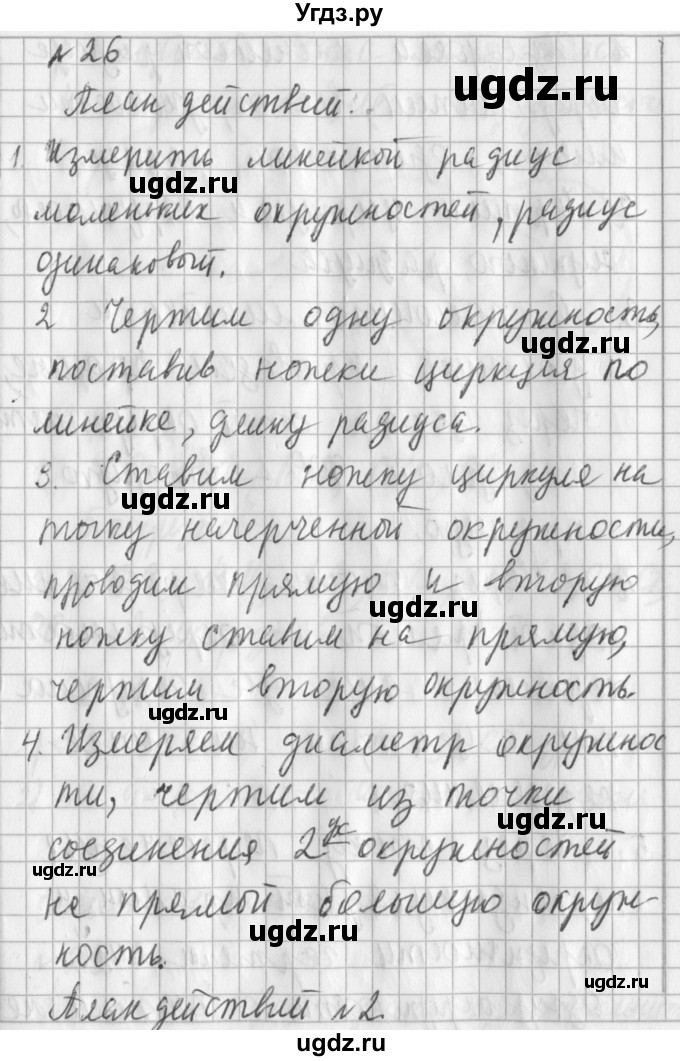 Угдз.ру
№ 26
ugdz.ru
План действий:
1. Измерить линейкой радиус
ugdz.ru
моленьких окружностей, радиус
одинаковый.
2 Чертим одну окружность,
ugdz.ru
поставив ножки циркуля по
линейке, длину радиуса.
3. Ставим ножку циркуля на
ugdz.ru
точку начерченной окружности,
проводим прямую и вторую
ugdz.ru
ножку ставим на прямую,
чертим вторую окружность.
ugdz.ru
4. Измеряем диаметр окружнос
ти, чертим из точки
ugdz.ru
соединения 2ух окружностей
ugdz.ru
не прямой большую окруж-
ugdz.ru
ность.
План действий №2.
ugdz.ru
Угдз.ру